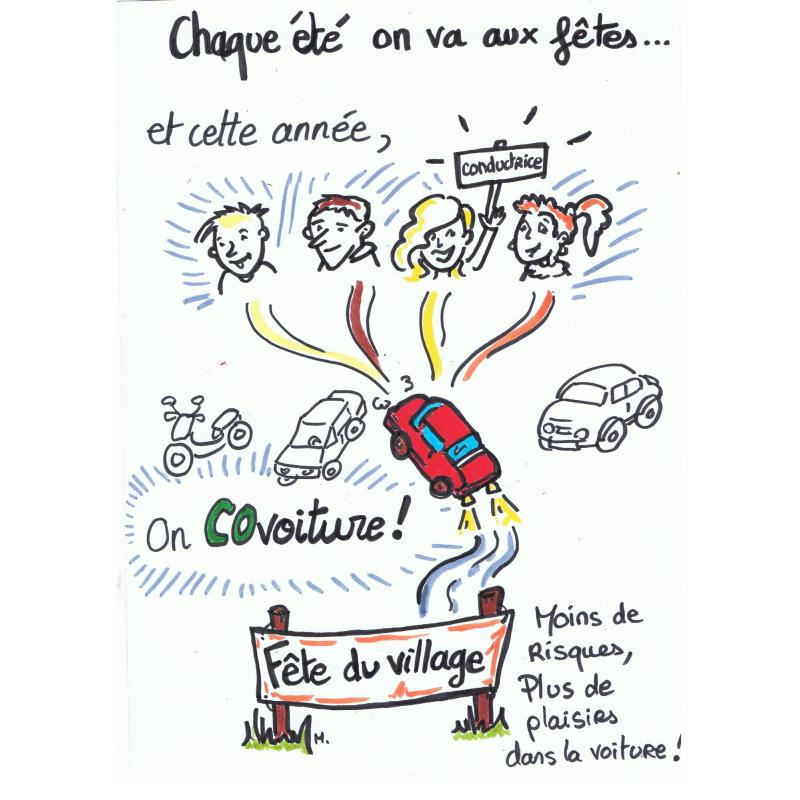 Chaque été on va aux fêtes...
et cette année,
conductrice
On COvoiture !
Fête du village
Moins de
Risques,
Plus de
plaisirs
dans la voiture !
H.